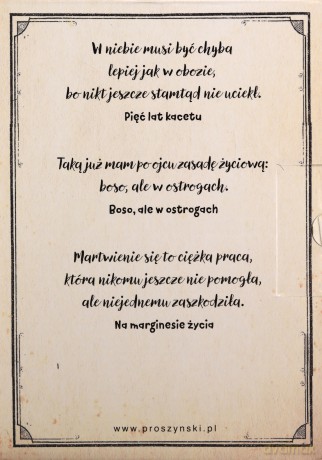 W niebie musi być chyba
lepiej jak w obozie,
bo nikt jeszcze stamtąd nie uciekł.
Pięć lat kacetu
Taką już mam po ojcu zasadę życiową:
boso, ale w ostrogach.
Boso, ale w ostrogach
Martwienie się to ciężka praca,
która nikomu jeszcze nie pomogła,
ale niejednemu zaszkodziła.
Na marginesie życia
www.proszynski.pl